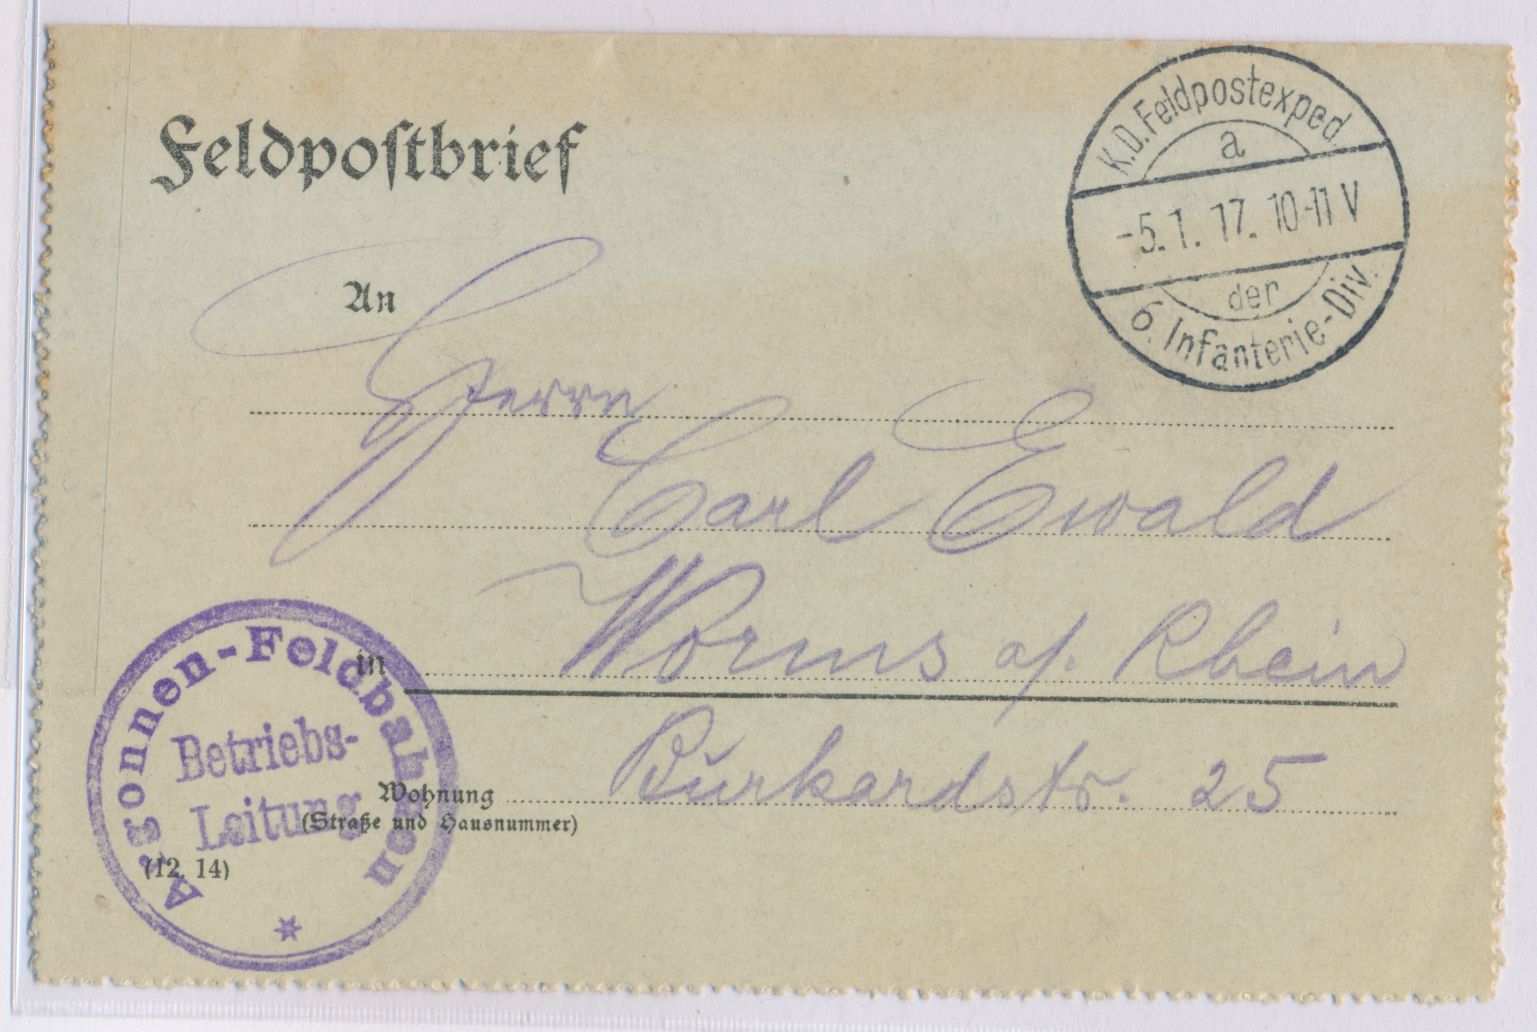 Feldpostbrief
K.D. Feldpostexped.
a
-5.1.17. 10-11 V
der
6. Infanterie-Div.
An
Herrn
Carl Ewald
in Worms a/. Rhein
Wohnung Burkardstr. 25
(Straße und Hausnummer)
Argonnen-Feldbahnen
Betriebs-
Leitung
(12. 14)